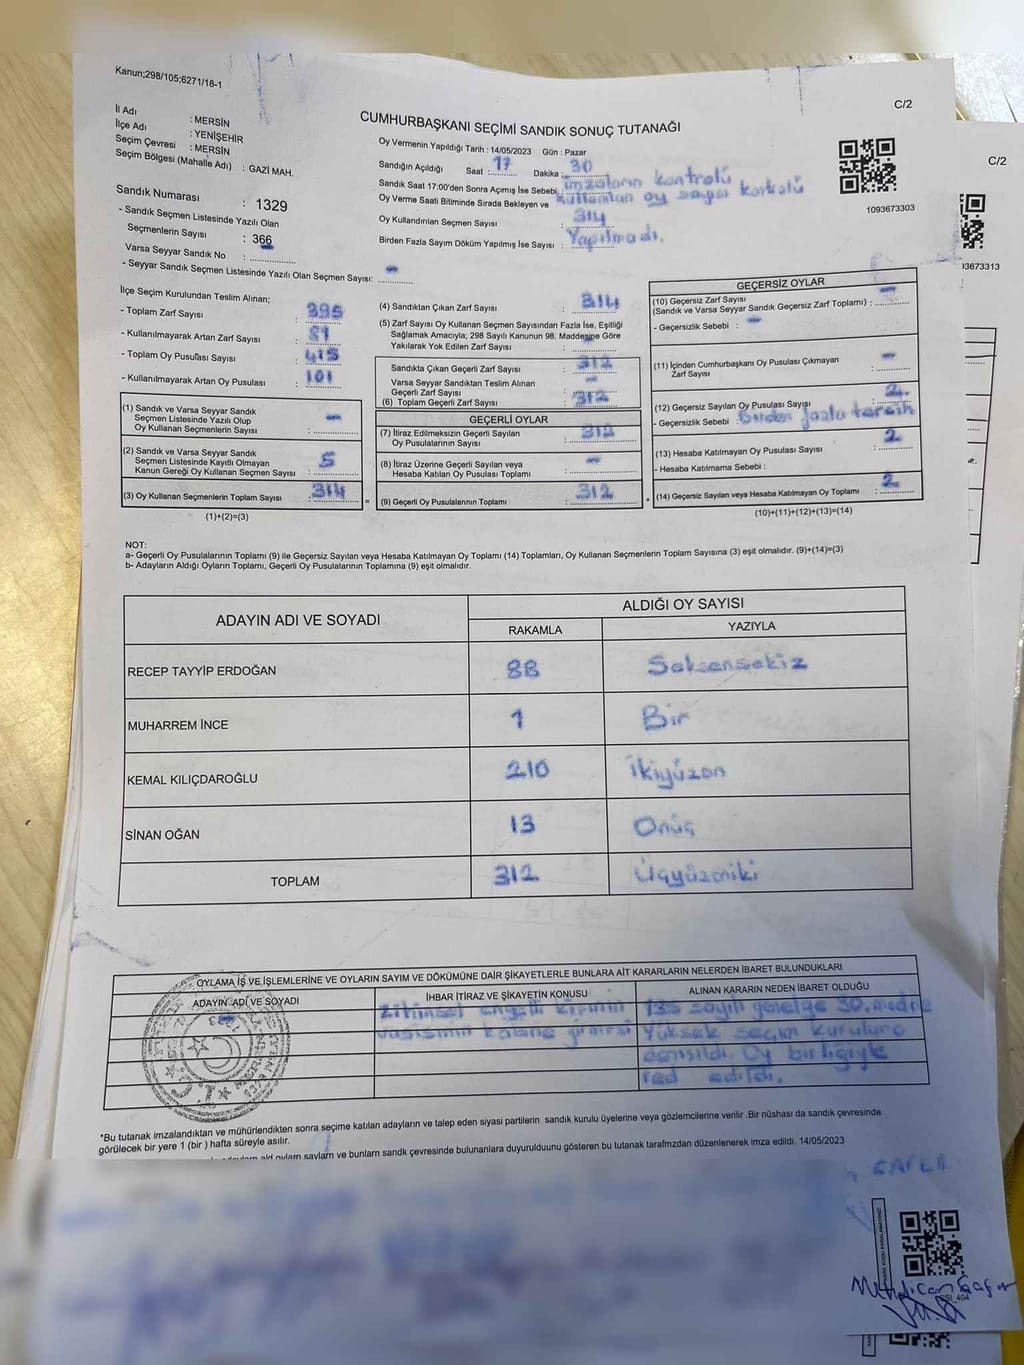 Kanun;298/105;6271/18-1
C/2
İl Adı : MERSİN
İlçe Adı : YENİŞEHİR
Seçim Çevresi : MERSİN
Seçim Bölgesi (Mahalle Adı) : GAZİ MAH.
Sandık Numarası : 1329
- Sandık Seçmen Listesinde Yazılı Olan
Seçmenlerin Sayısı : 366
Varsa Seyyar Sandık No :
- Seyyar Sandık Seçmen Listesinde Yazılı Olan Seçmen Sayısı: -
CUMHURBAŞKANI SEÇİMİ SANDIK SONUÇ TUTANAĞI
Oy Vermenin Yapıldığı Tarih : 14/05/2023 Gün : Pazar
Sandığın Açıldığı Saat : 17 Dakika : 30
Sandık Saat 17:00'den Sonra Açımış İse Sebebi : imzaların kontrolü
kullanılan oy sayısı kontrolü
Oy Verme Saati Bitiminde Sırada Bekleyen ve
Oy Kullandırılan Seçmen Sayısı : 314
Birden Fazla Sayım Döküm Yapılmış İse Sayısı : Yapılmadı.
1093673303
C/2
93673313
İlçe Seçim Kurulundan Teslim Alınan;
- Toplam Zarf Sayısı : 395
- Kullanılmayarak Artan Zarf Sayısı : 81
- Toplam Oy Pusulası Sayısı : 415
- Kullanılmayarak Artan Oy Pusulası : 101
(1) Sandık ve Varsa Seyyar Sandık
Seçmen Listesinde Yazılı Olup
Oy Kullanan Seçmenlerin Sayısı : -
(2) Sandık ve Varsa Seyyar Sandık
Seçmen Listesinde Kayıtlı Olmayan
Kanun Gereği Oy Kullanan Seçmen Sayısı : 5
(3) Oy Kullanan Seçmenlerin Toplam Sayısı : 314 =
(1)+(2)=(3)
(4) Sandıktan Çıkan Zarf Sayısı : 314
(5) Zarf Sayısı Oy Kullanan Seçmen Sayısından Fazla İse, Eşitliği
Sağlamak Amacıyla; 298 Sayılı Kanunun 98. Maddesine Göre
Yakılarak Yok Edilen Zarf Sayısı : -
Sandıkta Çıkan Geçerli Zarf Sayısı : 312
Varsa Seyyar Sandıktan Teslim Alınan
Geçerli Zarf Sayısı : -
(6) Toplam Geçerli Zarf Sayısı : 312
GEÇERLİ OYLAR
(7) İtiraz Edilmeksizin Geçerli Sayılan
Oy Pusulalarının Sayısı : 312
(8) İtiraz Üzerine Geçerli Sayılan veya
Hesaba Katılan Oy Pusulası Toplamı : -
(9) Geçerli Oy Pusulalarının Toplamı : 312 +
GEÇERSİZ OYLAR
(10) Geçersiz Zarf Sayısı
(Sandık ve Varsa Seyyar Sandık Geçersiz Zarf Toplamı) : -
- Geçersizlik Sebebi : -
(11) İçinden Cumhurbaşkanı Oy Pusulası Çıkmayan
Zarf Sayısı : -
(12) Geçersiz Sayılan Oy Pusulası Sayısı : 2
- Geçersizlik Sebebi : Birden fazla tercih
(13) Hesaba Katılmayan Oy Pusulası Sayısı : 2
- Hesaba Katılmama Sebebi :
(14) Geçersiz Sayılan veya Hesaba Katılmayan Oy Toplamı : 2
(10)+(11)+(12)+(13)=(14)
NOT:
a- Geçerli Oy Pusulalarının Toplamı (9) ile Geçersiz Sayılan veya Hesaba Katılmayan Oy Toplamı (14) Toplamları, Oy Kullanan Seçmenlerin Toplam Sayısına (3) eşit olmalıdır. (9)+(14)=(3)
b- Adayların Aldığı Oyların Toplamı, Geçerli Oy Pusulalarının Toplamına (9) eşit olmalıdır.
ADAYIN ADI VE SOYADI ALDIĞI OY SAYISI
RAKAMLA YAZIYLA
RECEP TAYYİP ERDOĞAN 88 Seksensekiz
MUHARREM İNCE 1 Bir
KEMAL KILIÇDAROĞLU 210 İkiyüzon
SİNAN OĞAN 13 Onüç
TOPLAM 312 Üçyüzoniki
OYLAMA İŞ VE İŞLEMLERİNE VE OYLARIN SAYIM VE DÖKÜMÜNE DAİR ŞİKAYETLERLE BUNLARA AİT KARARLARIN NELERDEN İBARET BULUNDUKLARI
ADAYIN ADI VE SOYADI İHBAR İTİRAZ VE ŞİKAYETİN KONUSU ALINAN KARARIN NEDEN İBARET OLDUĞU
Zihinsel engelli kişinin 135 sayılı genelge 30. madde
vasisinin kabine girmesi Yüksek seçim kuruluna
danışıldı. Oy birliğiyle
red edildi.
*Bu tutanak imzalandıktan ve mühürlendikten sonra seçime katılan adayların ve talep eden siyasi partilerin sandık kurulu üyelerine veya gözlemcilerine verilir .Bir nüshası da sandık çevresinde
görülecek bir yere 1 (bir ) hafta süreyle asılır.
ald oyların sayları ve bunların sandk çevresinde bulunanlara duyurulduunu gösteren bu tutanak tarafmzdan düzenlenerek imza edildi. 14/05/2023